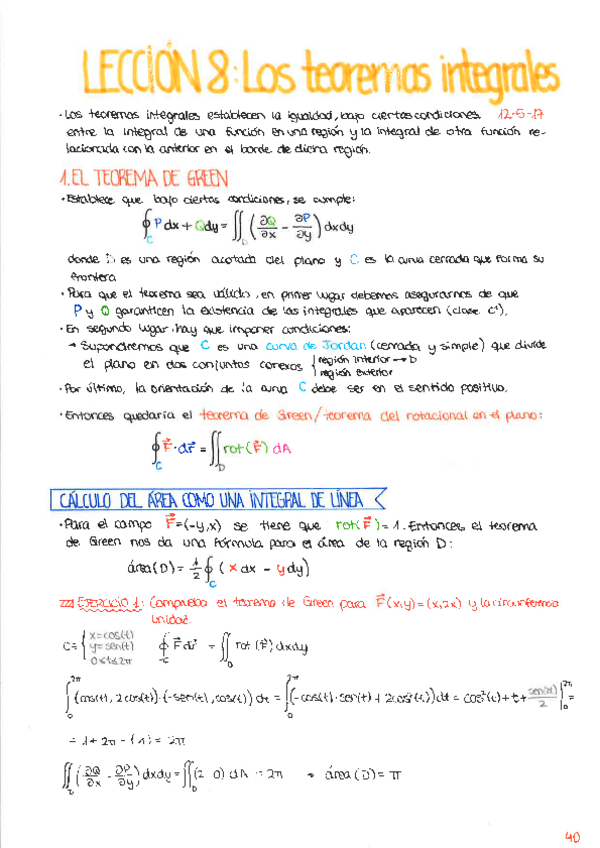 LECCIÓN 8: Los teoremas integrales
· Los teoremas integrales establecen la igualdad, bajo ciertas condiciones 12-5-17
entre la integral de una función en una región y la integral de otra función re-
lacionada con la anterior en el borde de dicha región.
1. EL TEOREMA DE GREEN
· Establece que bajo ciertas condiciones, se cumple:
∮_C Pdx + Qdy = ∬_D (∂Q/∂x - ∂P/∂y) dxdy
donde D es una región acotada del plano y C es la curva cerrada que forma su
frontera
· Para que el teorema sea válido, en primer lugar debemos asegurarnos de que
P y Q garanticen la existencia de las integrales que aparecen (clase C¹).
· En segundo lugar, hay que imponer condiciones:
→ Supondremos que C es una curva de Jordan (cerrada y simple) que divide
el plano en dos conjuntos conexos { región interior → D
región exterior
· Por último, la orientación de la curva C debe ser en el sentido positivo.
· Entonces quedaría el teorema de Green/teorema del rotacional en el plano:
∮_C F⃗·dr⃗ = ∬_D rot(F⃗) dA
CÁLCULO DEL ÁREA COMO UNA INTEGRAL DE LÍNEA
· Para el campo F⃗=(-y,x) se tiene que rot(F⃗)=1. Entonces, el teorema
de Green nos da una fórmula para el área de la región D:
área(D) = 1/2 ∮_C (x dx - y dy)
EJERCICIO 1: Comprueba el teorema de Green para F⃗(x,y)=(x,2x) y la circunferencia
unidad.
C≡ { x=cos(t)
y=sen(t)
0≤t≤2π
∮_C F⃗dr⃗ = ∬_D rot(F⃗)dxdy
∫_0^2π (cos(t), 2cos(t))·(-sen(t), cos(t)) dt = ∫_0^2π (-cos(t)·sen(t)+2cos²(t)) dt = cos²(t)+t+ sen(2t)/2 ]_0^2π =
= 1+2π-(1) = 2π
∬_D (∂Q/∂x - ∂P/∂y) dxdy = ∬_D (2-0) dA = 2π → área(D) = π
40